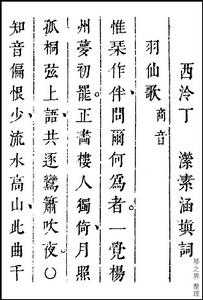 西泠丁　瀠素涵填詞
羽仙歌　商音
惟琹作伴問爾何為者。一覺楊
州夢初罷。正畵樓人獨倚月照
孤桐弦上語共逐鸞簫吹夜○
知音偏恨少流水高山此曲千
琴之界 整理